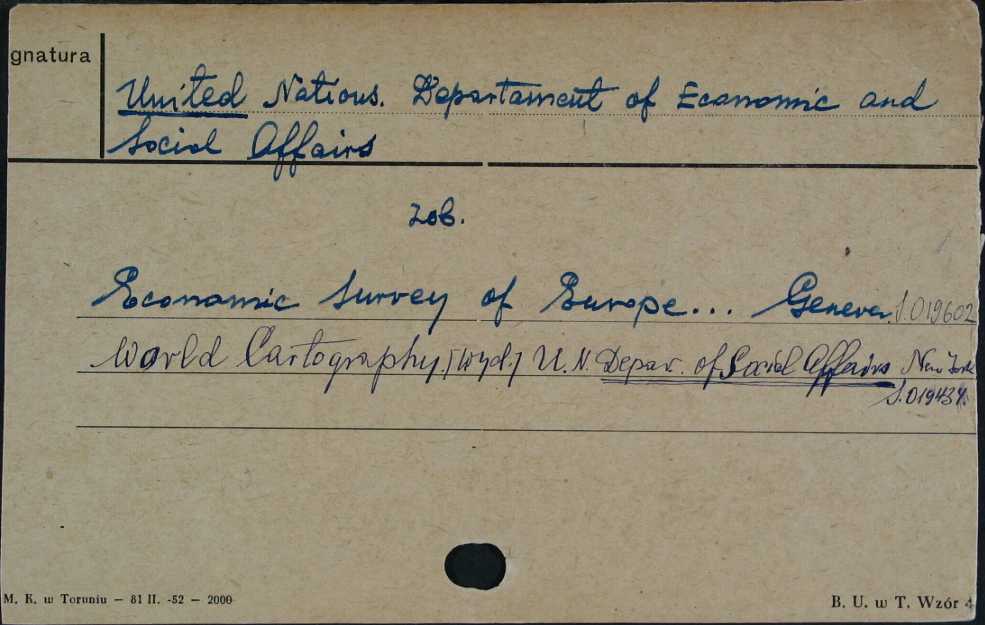 gnatura
United Nations. Departament of Economic and
Social Affairs
zob.
Economic Survey of Europe... Geneva. S.019602
World Cartography. [Wyd.] U.N. Depar. of Social Affairs New York
S.019434.
M. K. w Toruniu — 81 II. -52 — 2000
B. U. w T. Wzór 4